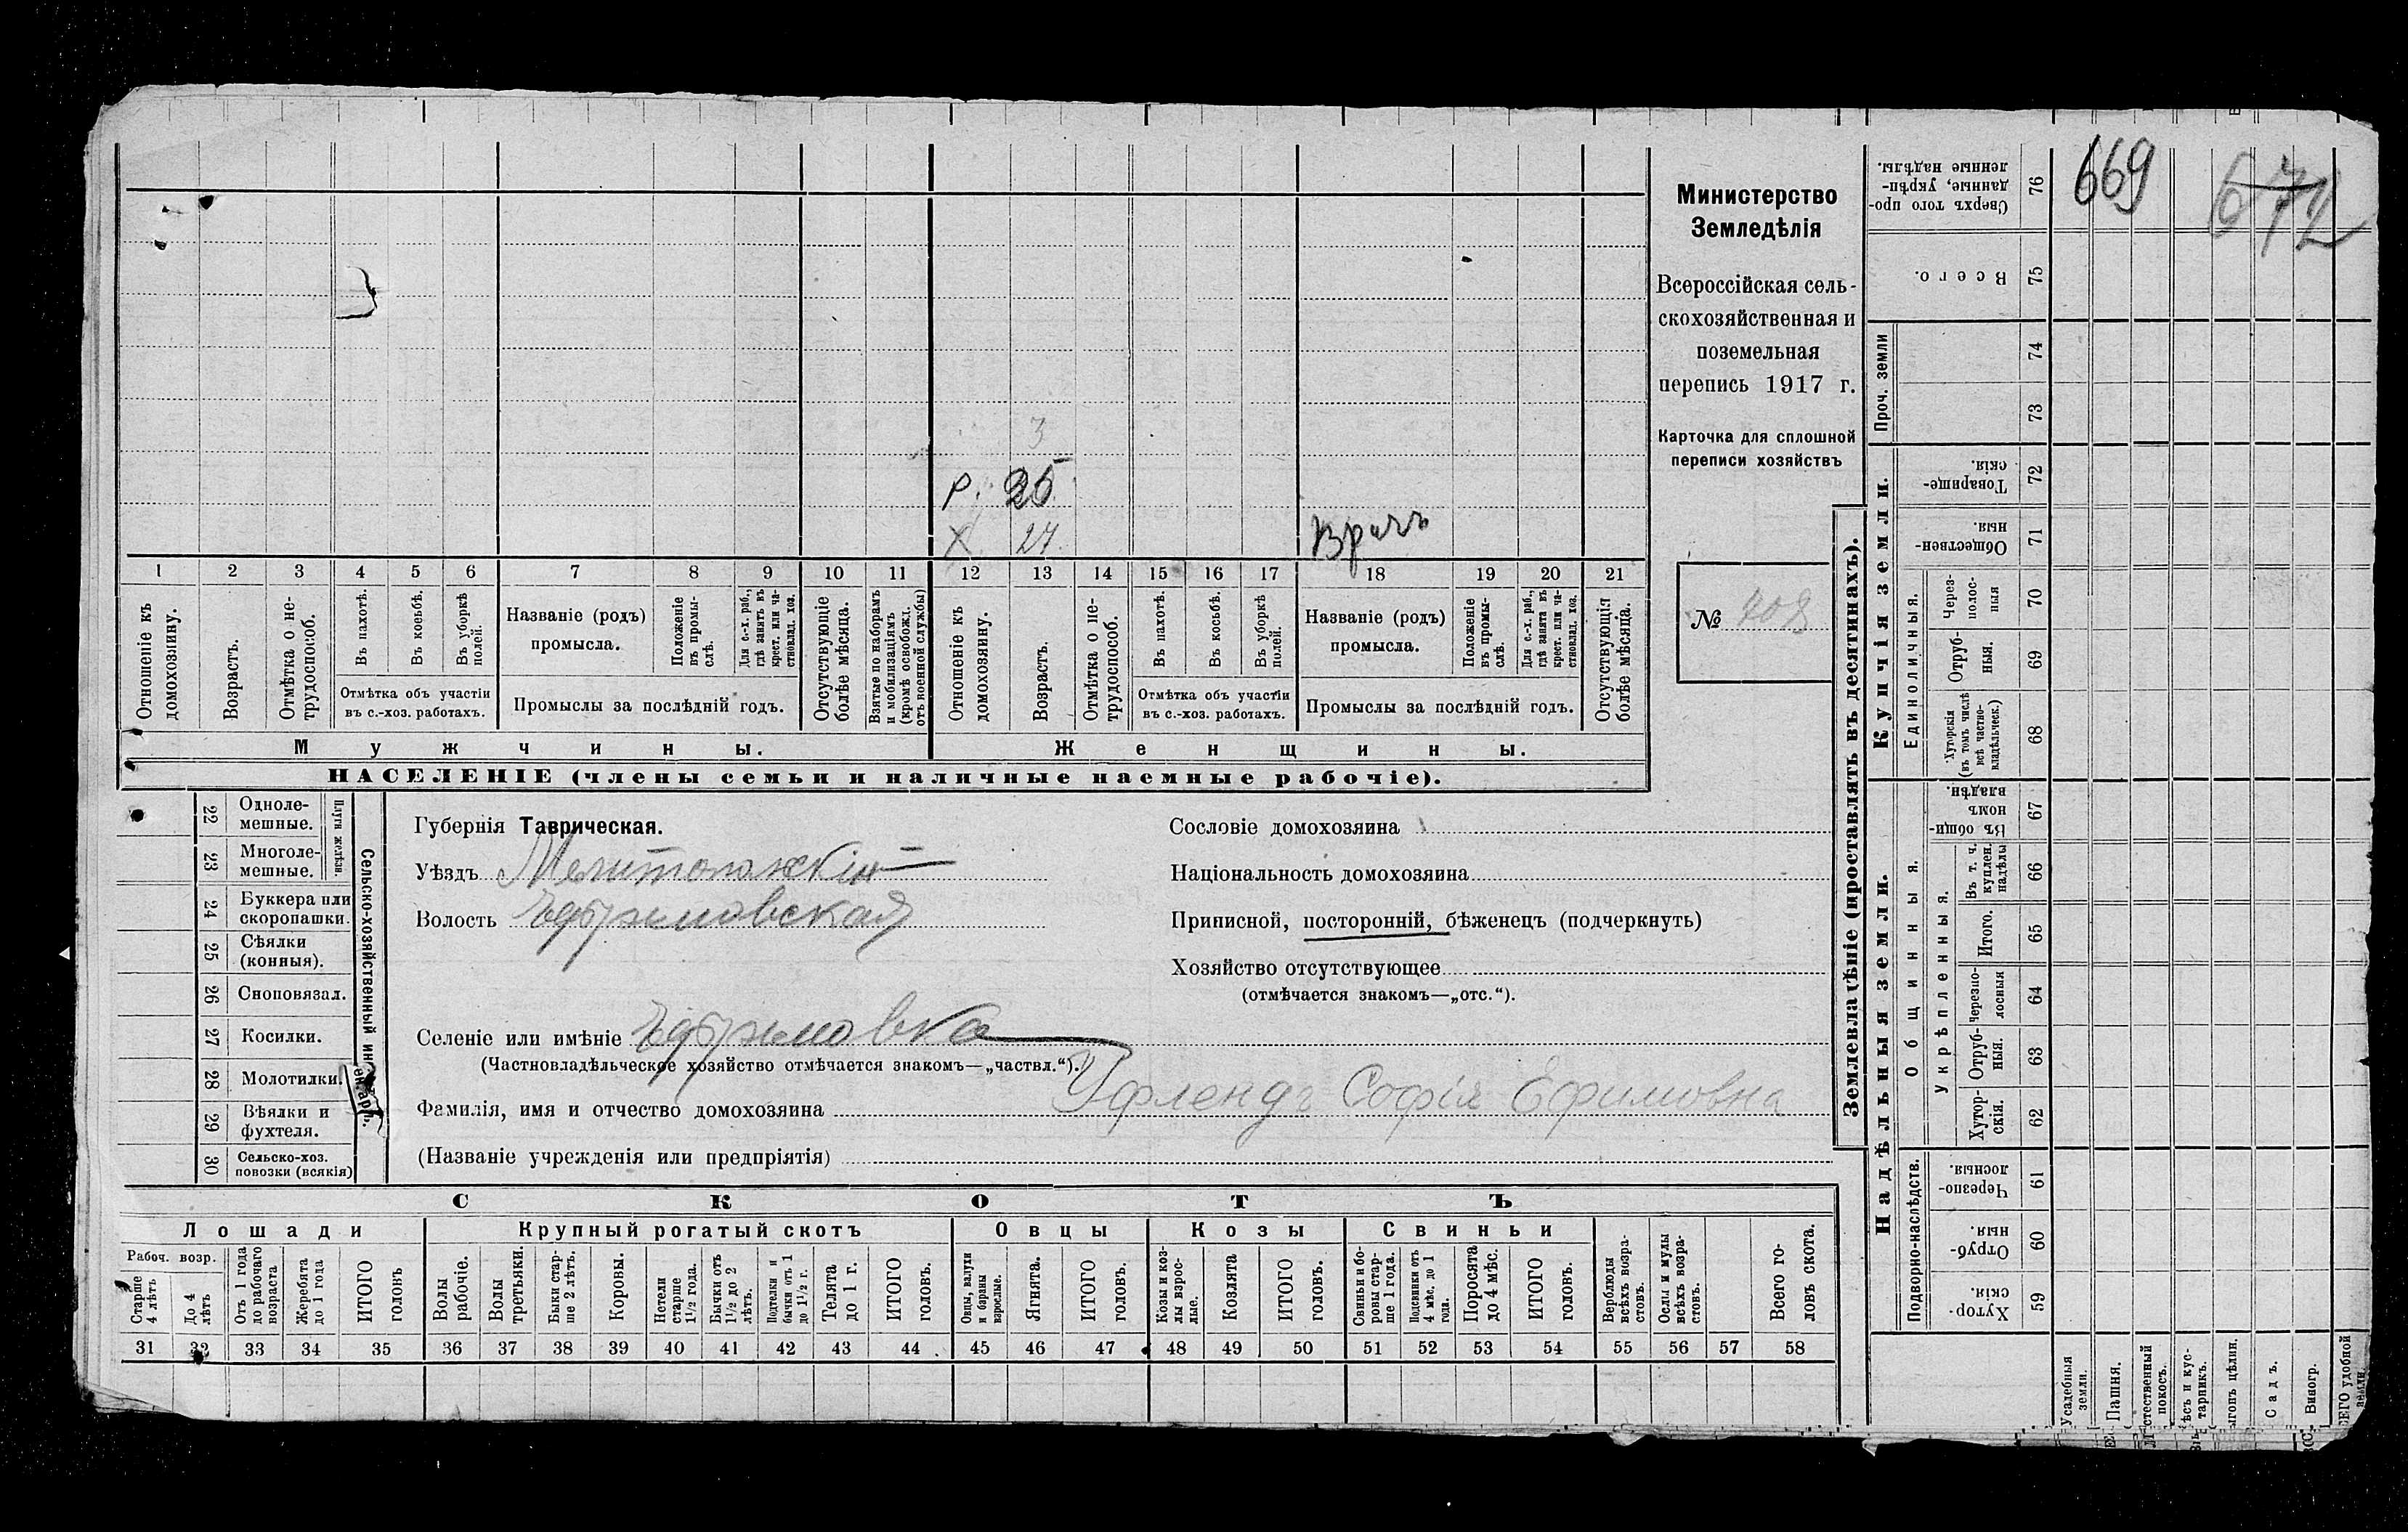 669
672
3
Р. 25
Х 27
Врачъ
1 2 3 4 5 6 7 8 9 10 11 12 13 14 15 16 17 18 19 20 21
Отношеніе къ домохозяину.
Возрастъ.
Отмѣтка о не-трудоспособ.
Въ пахотѣ.
Въ косьбѣ.
Въ уборкѣ полей.
Отмѣтка объ участіи
въ с.-хоз. работахъ.
Названіе (родъ)
промысла.
Положеніе въ промы-слѣ.
Для с.-х. раб., гдѣ занятъ въ крест. или ча-стновлад. хоз.
Промыслы за послѣдній годъ.
Отсутствующіе болѣе мѣсяца.
Взятые по наборамъ и мобилизаціямъ (кромѣ освобожд. отъ военной службы)
Отношеніе къ домохозяину.
Возрастъ.
Отмѣтка о не-трудоспособ.
Въ пахотѣ.
Въ косьбѣ.
Въ уборкѣ полей.
Отмѣтка объ участіи
въ с.-хоз. работахъ.
Названіе (родъ)
промысла.
Положеніе въ промы-слѣ.
Для с.-х. раб., гдѣ занята въ крест. или ча-стновлад. хоз.
Промыслы за послѣдній годъ.
Отсутствующія болѣе мѣсяца.
Мужчины.
Женщины.
НАСЕЛЕНІЕ (члены семьи и наличные наемные рабочіе).
Министерство
Земледѣлія
Всероссійская сель-
скохозяйственная и
поземельная
перепись 1917 г.
Карточка для сплошной
переписи хозяйствъ
№
Сельско-хозяйственный
Плуги желѣзн.
22 Одноле-мешные.
23 Многоле-мешные.
24 Буккера или скоропашки.
25 Сѣялки (конныя).
26 Сноповязал.
27 Косилки.
28 Молотилки.
29 Вѣялки и фухтеля.
30 Сельско-хоз. повозки (всякія)
Губернія Таврическая.
Уѣздъ
Волость
Селеніе или имѣніе
(Частновладѣльческое хозяйство отмѣчается знакомъ—„частвл.“).
Фамилія, имя и отчество домохозяина Уфлендъ Софія Ефимовна
(Названіе учрежденія или предпріятія)
Сословіе домохозяина
Національность домохозяина
Приписной, посторонній, бѣженецъ (подчеркнуть)
Хозяйство отсутствующее
(отмѣчается знакомъ—„отс.“).
СКОТЪ
Лошади
Крупный рогатый скотъ
Овцы
Козы
Свиньи
Рабоч. возр.
Старше 4 лѣтъ
До 4 лѣтъ
Отъ 1 года до рабочаго возраста
Жеребята до 1 года
ИТОГО головъ
Волы рабочіе.
Волы третьяки.
Быки стар-ше 2 лѣтъ.
Коровы.
Нетели старше 1½ года.
Бычки отъ 1½ до 2 лѣтъ.
Подтелки и бычки отъ 1 до 1½ г.
Телята до 1 г.
ИТОГО головъ.
Овцы, валухи и бараны взрослые.
Ягнята.
ИТОГО головъ.
Козы и коз-лы взрос-лые.
Козлята
ИТОГО головъ.
Свиньи и бо-ровы стар-ше 1 года.
Подсвинки отъ 4 мѣс. до 1 года.
Поросята до 4 мѣс.
ИТОГО головъ.
Верблюды всѣхъ возра-стовъ.
Ослы и мулы всѣхъ возра-стовъ.
Всего го-ловъ скота.
31 32 33 34 35 36 37 38 39 40 41 42 43 44 45 46 47 48 49 50 51 52 53 54 55 56 57 58
Землевладѣніе (проставлять въ десятинахъ).
Купчія земли.
Надѣльныя земли.
Сверхъ того про-данные, укрѣп-ленные надѣлы. 76
Всего. 75
Проч. земли
74
73
Товарище-скія. 72
Обществен-ныя. 71
Единоличныя.
Через-полос-ныя 70
Отруб-ныя. 69
Хуторскія (въ томъ числѣ всѣ частно-владѣльческ.) 68
Общинныя.
Въ общи-номъ владѣн. 67
Укрѣпленныя.
Въ т. ч. куплен. надѣлы 66
Итого. 65
Черезпо-лосныя 64
Отруб-ныя. 63
Хутор-скія. 62
Подворно-наслѣдств.
Черезпо-лосныя. 61
Отруб-ныя. 60
Хутор-скія. 59
Усадебныя земли.
Пашня.
Садъ.
Виногр.